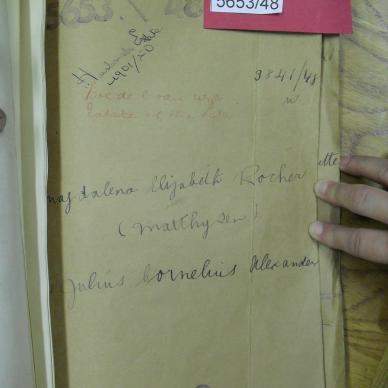 5653/48
5653/48
Husband's Estate
1901/20
3841/48
w
Estate of the late
magdalena Elizabeth Rocher
(matthysen)
Julius Cornelius Alexander